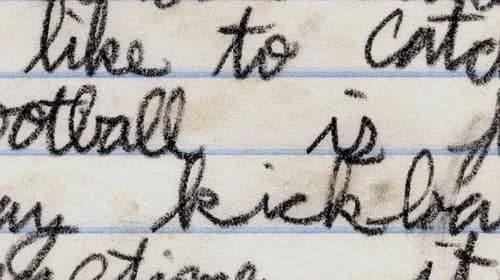 like to catc
ootball is
ay kickba
ctions it